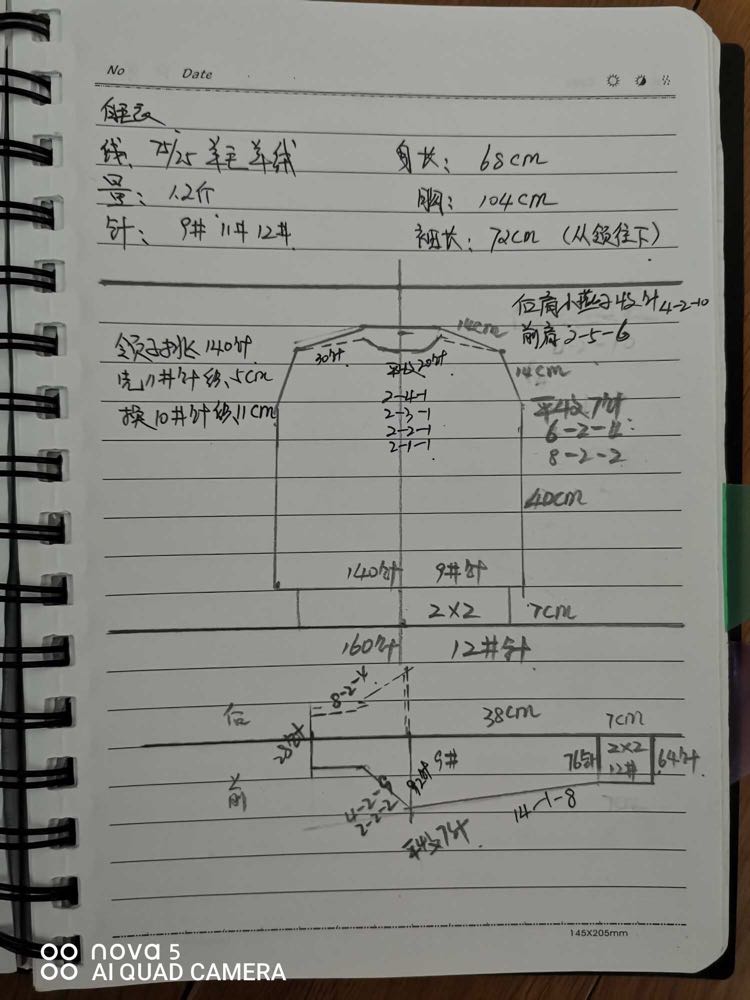 No Date
线: 75/25 羊毛羊绒 身长: 68cm
量: 1.2斤 胸: 104cm
针: 9# 11# 12# 袖长: 72cm (从领往下)
4-2-10
前肩 2-5-6
14cm
领子挑 140针
先11#针织5cm
换10#针织11cm
30针
平收20针
2-4-1
2-3-1
2-2-1
2-1-1
14cm
平收7针
6-2-4
8-2-2
40cm
140针 9#针
2×2 7cm
160针 12#针
8-2-4
后 38cm 7cm
28针
前
9#
92针
76针 2×2 64针
12#
4-2-9
2-2-2
14-1-8
平收7针
145X205mm
nova 5
AI QUAD CAMERA